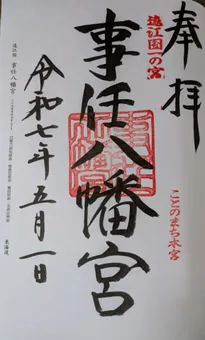 奉拝
遠江國一の宮
ことのまち本宮
事任八幡宮
令和七年五月一日
遠江國 事任八幡宮
東海道